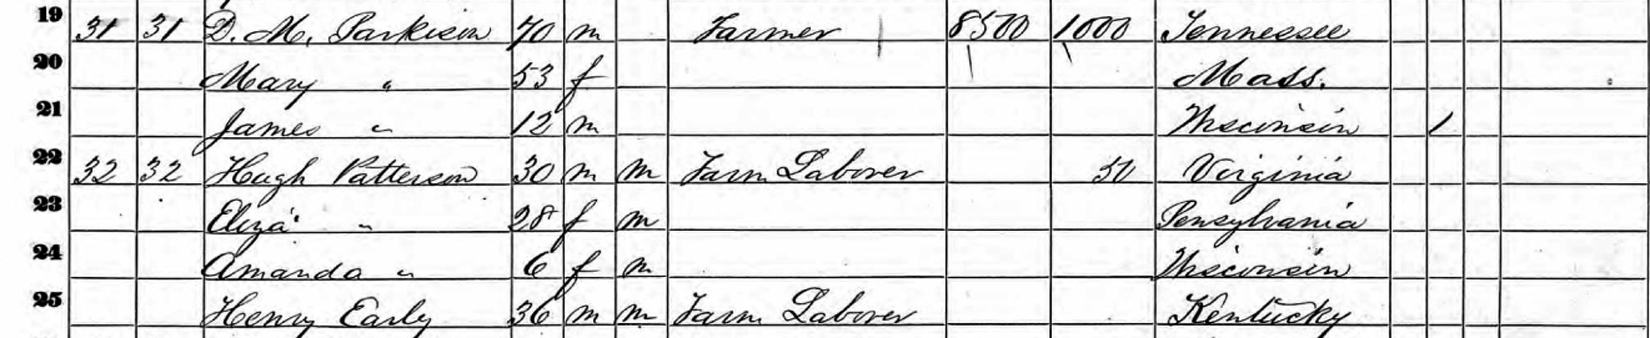 19 31 31 D. M. Parkison 70 m Farmer 8500 1000 Tennessee
20 Mary " 53 f Mass.
21 James " 12 m Wisconsin 1
22 32 32 Hugh Patterson 30 m m Farm Laborer 50 Virginia
23 Eliza " 28 f m Pensylvania
24 Amanda " 6 f m Wisconsin
25 Henry Early 36 m m Farm Laborer Kentucky